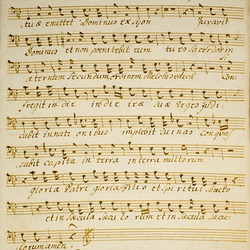 tuae emittet Dominus ex Sion Juravit
Dominus et non penitebit eum tu es Sacerdos in
aeternum Secundum ordinem Melchisedech Con
fregit in die in die irae suae Reges judi
cabit in nati onibus implebit ruinas Conquas
sabit capita in terra in terra multorum
gloria Patri gloria filio et spiritui Sancto
et in Saecula Saeculo rum et in Saecula Saecu
lorum amen